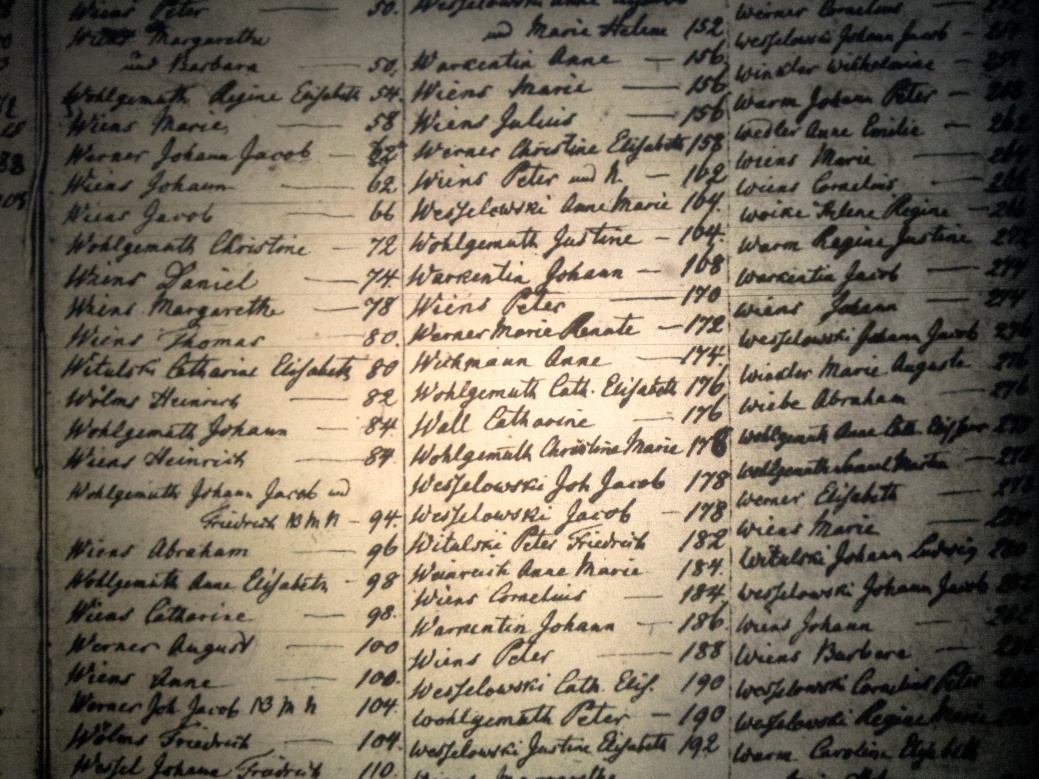 Wiens Peter — 50.
Wiens Margarethe
und Barbara — 50.
Wohlgemuth Regine Elisabeth 54.
Wiens Marie, — 58
Werner Johann Jacob — 62
Wiens Johann — 62.
Wiens Jacob — 66
Wohlgemuth Christine — 72
Wiens Daniel — 74.
Wiens Margarethe — 78
Wiens Thomas — 80.
Witulski Catharine Elisabeth 80
Wölms Heinrich — 82
Wohlgemuth Johann — 84.
Wiens Heinrich — 84.
Wohlgemuth Johann Jacob und
Friedrich — 94.
Wiens Abraham — 96
Wohlgemuth Anne Elisabeth — 98
Wiens Catharine — 98.
Werner August — 100
Wiens Anne — 100.
Werner Joh Jacob 104.
Wölms Friedrich — 104.
Wessel Johann Friedrich 110.
Wesselowski Anne
und Marie Helene 152
Warkentin Anne — 156
Wiens Marie — 156
Wiens Julius — 156
Werner Christine Elisabeth 158
Wiens Peter und — 162
Wesselowski Anne Marie 164.
Wohlgemuth Justine — 164.
Warkentin Johann — 168
Wiens Peter — 170
Werner Marie Renate — 172
Wichmann Anne — 174.
Wohlgemuth Cath. Elisabeth 176
Wall Catharine — 176
Wohlgemuth Christine Marie 178
Wesselowski Joh Jacob 178
Wesselowski Jacob — 178
Witulski Peter Friedrich 182
Weinreich Anne Marie 184.
Wiens Cornelius — 184
Warkentin Johann — 186
Wiens Peter — 188
Wesselowski Cath. Elis. 190
Wohlgemuth Peter — 190
Wesselowski Justine Elisabeth 192
Wiens Margarethe
Werner Cornelius —
Wesselowski Johann Jacob —
Winkler Wilhelmine
Warm Johann Peter —
Wedler Anne Emilie —
Wiens Marie —
Wiens Cornelius —
Woike Helene Regine —
Warm Regine Justine
Warkentin Jacob — 274
Wiens Johann — 274
Wesselowski Johann Jacob
Winkler Marie Auguste
Wiebe Abraham — 276
Wohlgemuth Anne Cath.
Wohlgemuth Samuel Martin —
Werner Elisabeth —
Wiens Marie — 280
Witulski Johann Ludwig 280
Wesselowski Johann Jacob
Wiens Johann —
Wiens Barbara —
Wesselowski Cornelius Peter
Wesselowski Regine Marie
Warm Caroline Elisabeth